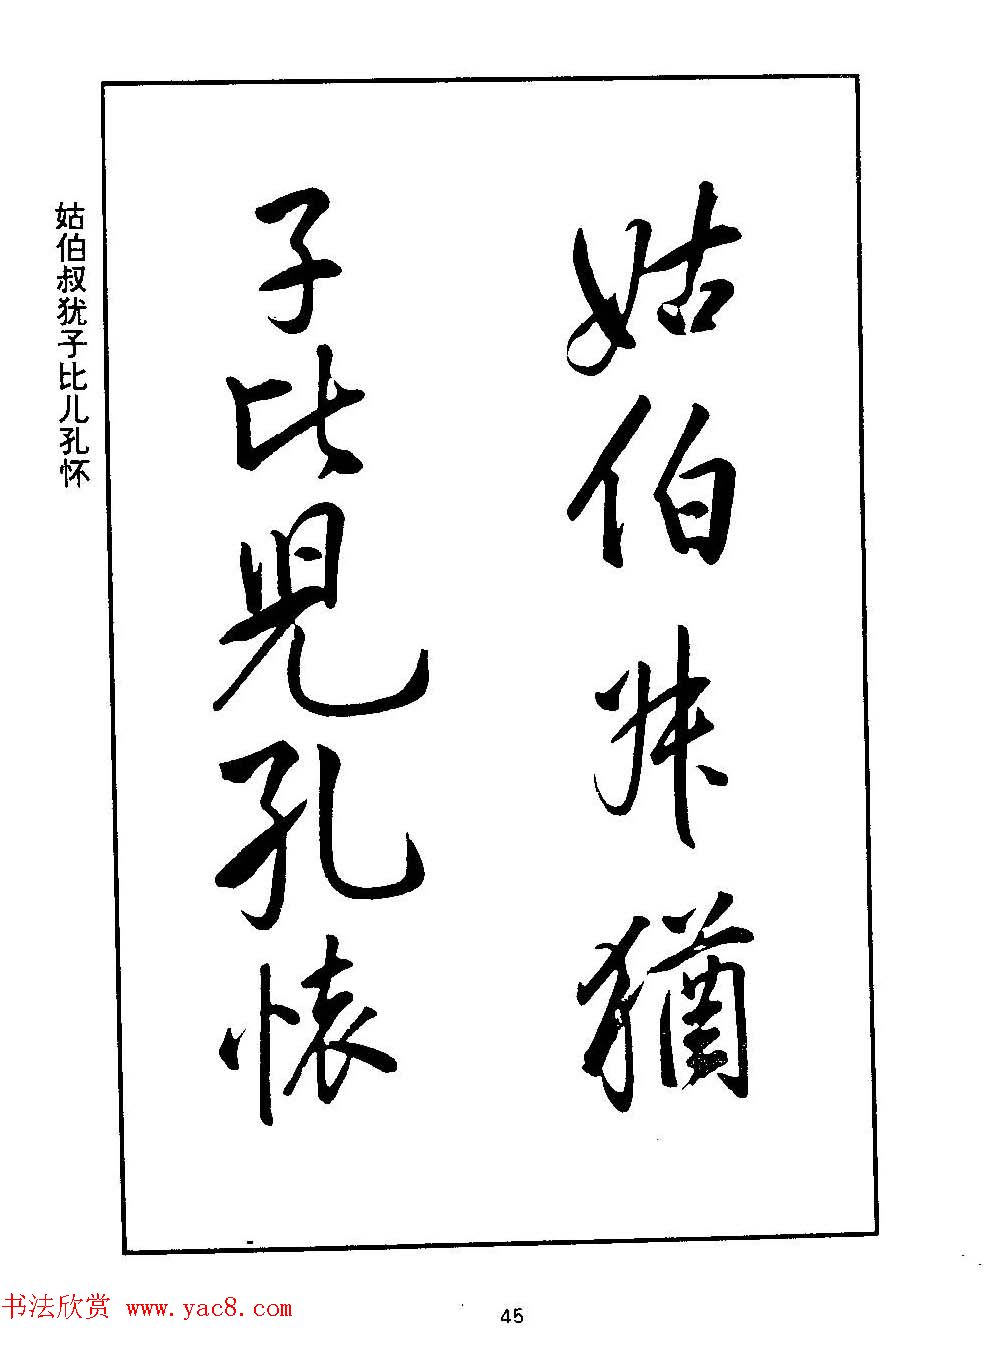 姑伯叔猶
子比兒孔懷
姑伯叔犹子比儿孔怀
书法欣赏 www.yac8.com
45